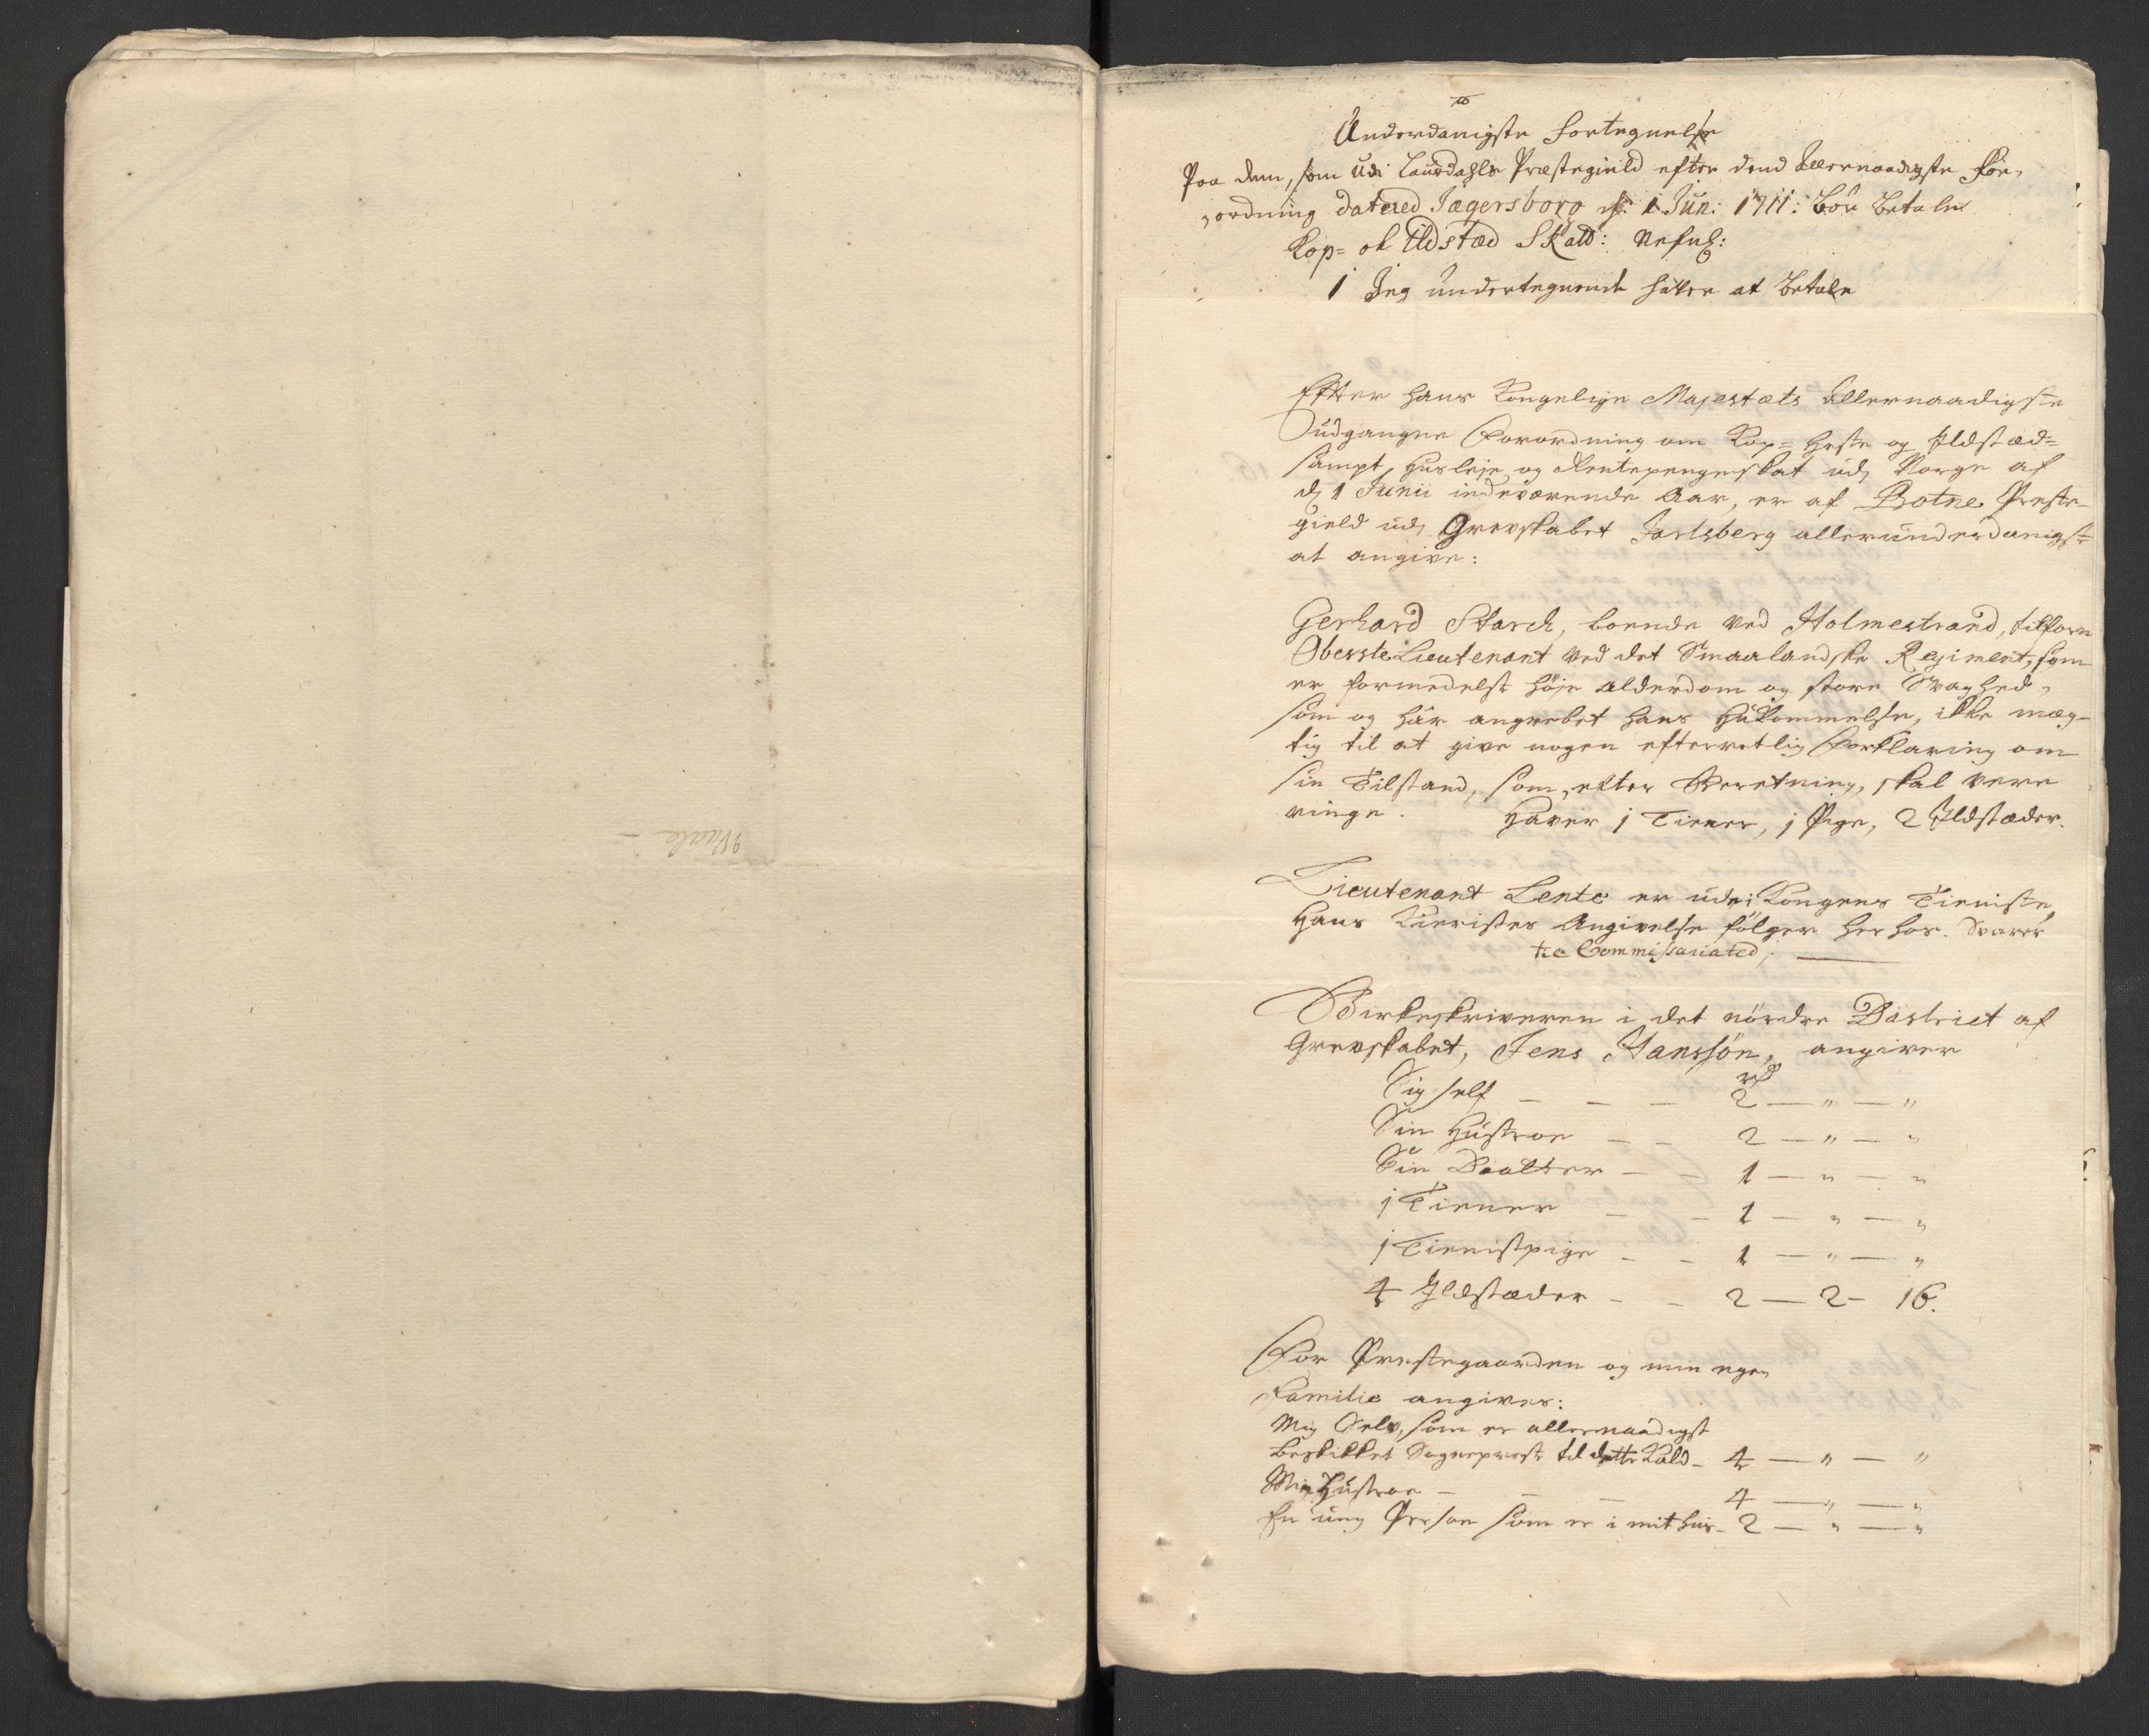 Underdanigste Fortegnelse
Paa dem, som udi Laurdahls Præstegield efter dend Allernaadigste For„
„ordning datered Jægersborg d: 1 Jun: 1711: bör betale
Kop= ok Ildstæd Skatt:
1 Jeg underteignende hafver at betale
Efter hans Kongelige Majestæts allernaadigste
udgangne Forordning om Kop= Heste og Ildstæd=
sampt Husleje og Rentepengeskat udj Norge af
dj 1 Junii indeværende Aar, er af Botne Preste-
gield udj Grevskabet Jarlsberg allerunderdanigst
at angive:
Gerhard Starck, boende ved Holmestrand, tilforn
Oberste Lieutenant ved det Smaalandske Regiment, som
er formedelst höje Alderdom og store Svaghed,
som og här angrebet hans Hukommelse, ikke mæg-
tig til at give nogen efterretlig Forklaring om
sin Tilstand, som, efter Beretning, skal vere
ringe. Haver 1 Tiener, 1 Pige, 2 Ildstæder.
Lieutenant Lente er udj Kongens Tieniste,
Hans Kieristes Angivelse fölger her hos. Svarer
til Commissariated,
Birkeskriveren i det nördre District af
Grevskabet, Jens Hanssön, angiver
rd
Sig self — — — 2 — „ — „
Sin Hustroe — — 2 — „ — „
Sin Daatter — — 1 — „ — „
1 Tiener — — 1 — „ — „
1 Tienistpige — — 1 — „ — „
4 Ildstæder — — 2 — 2 — 16.
For Prestegaarden og min egen
Familie angives:
Mig Selv, som er allernaadigst
beskikket Sogneprest til dette Kald — 4 — „ — „
Min Hustroe — — — 4 — „ — „
En ung Person som er i mit hus — 2 — „ — „